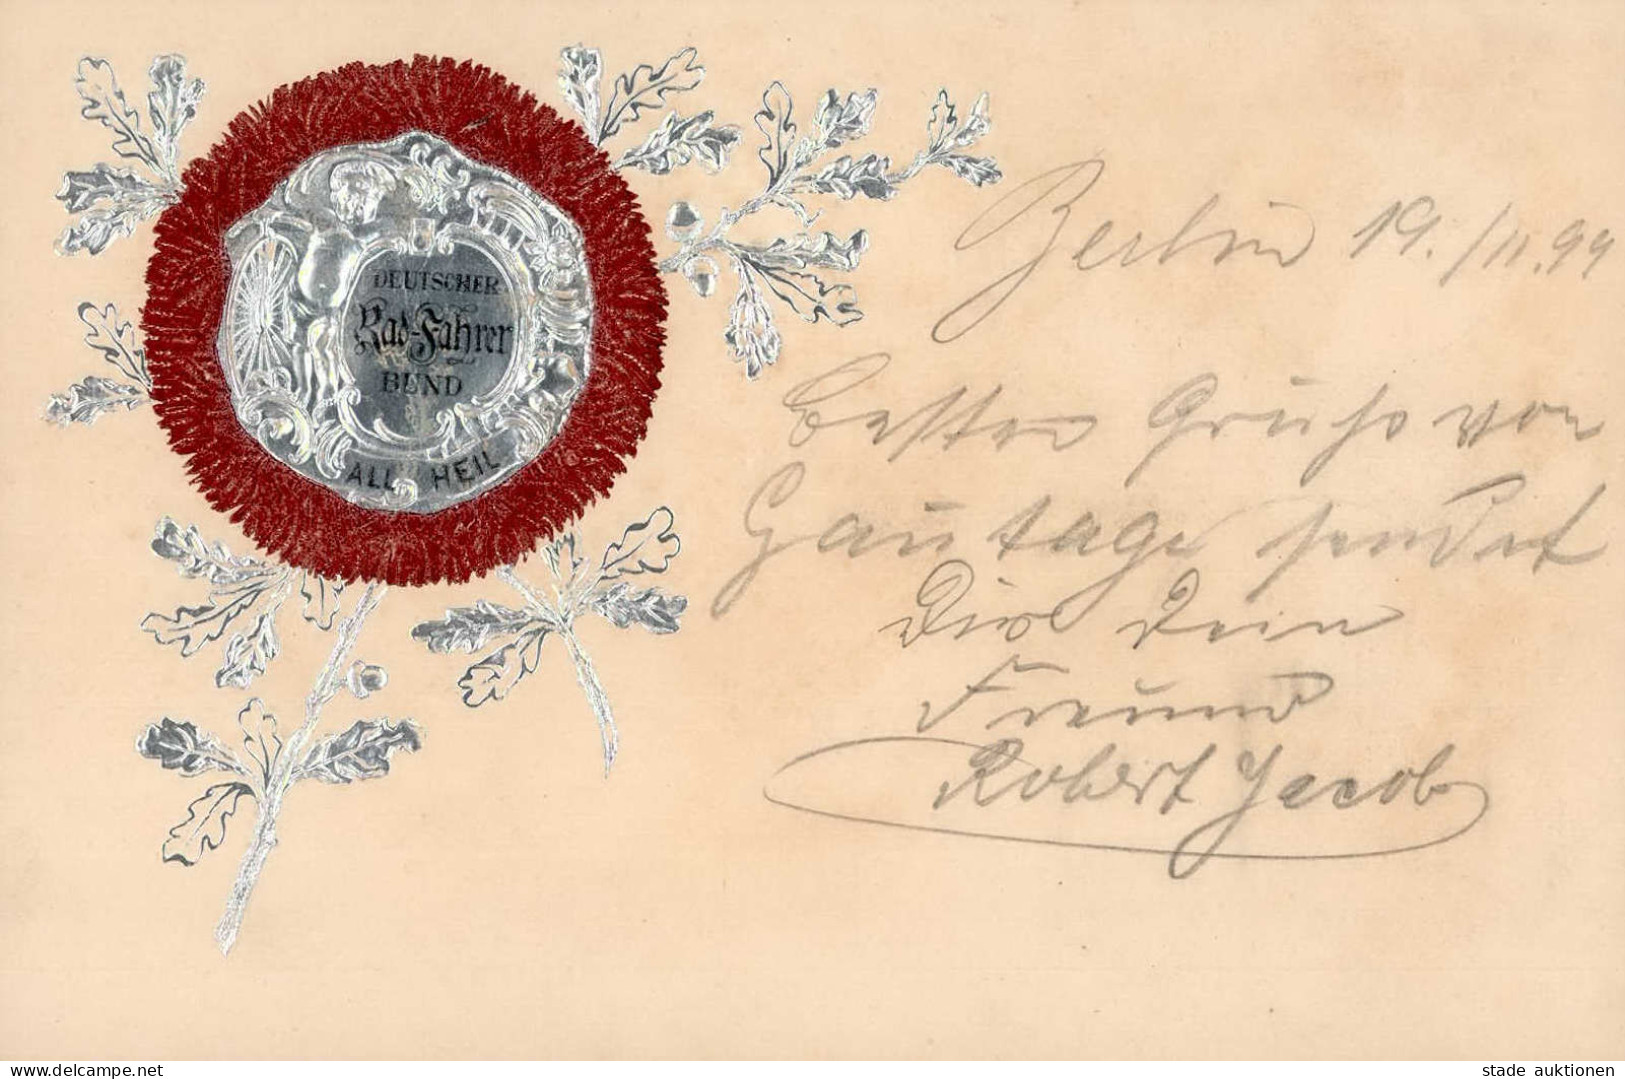 DEUTSCHER
Rad-Fahrer
BUND
ALL HEIL
Berlin 19./11.99
Besten Gruß vom
Gautage sendet
Dir Dein
Freund
Robert Jacob
delcampe.net
stade auktionen